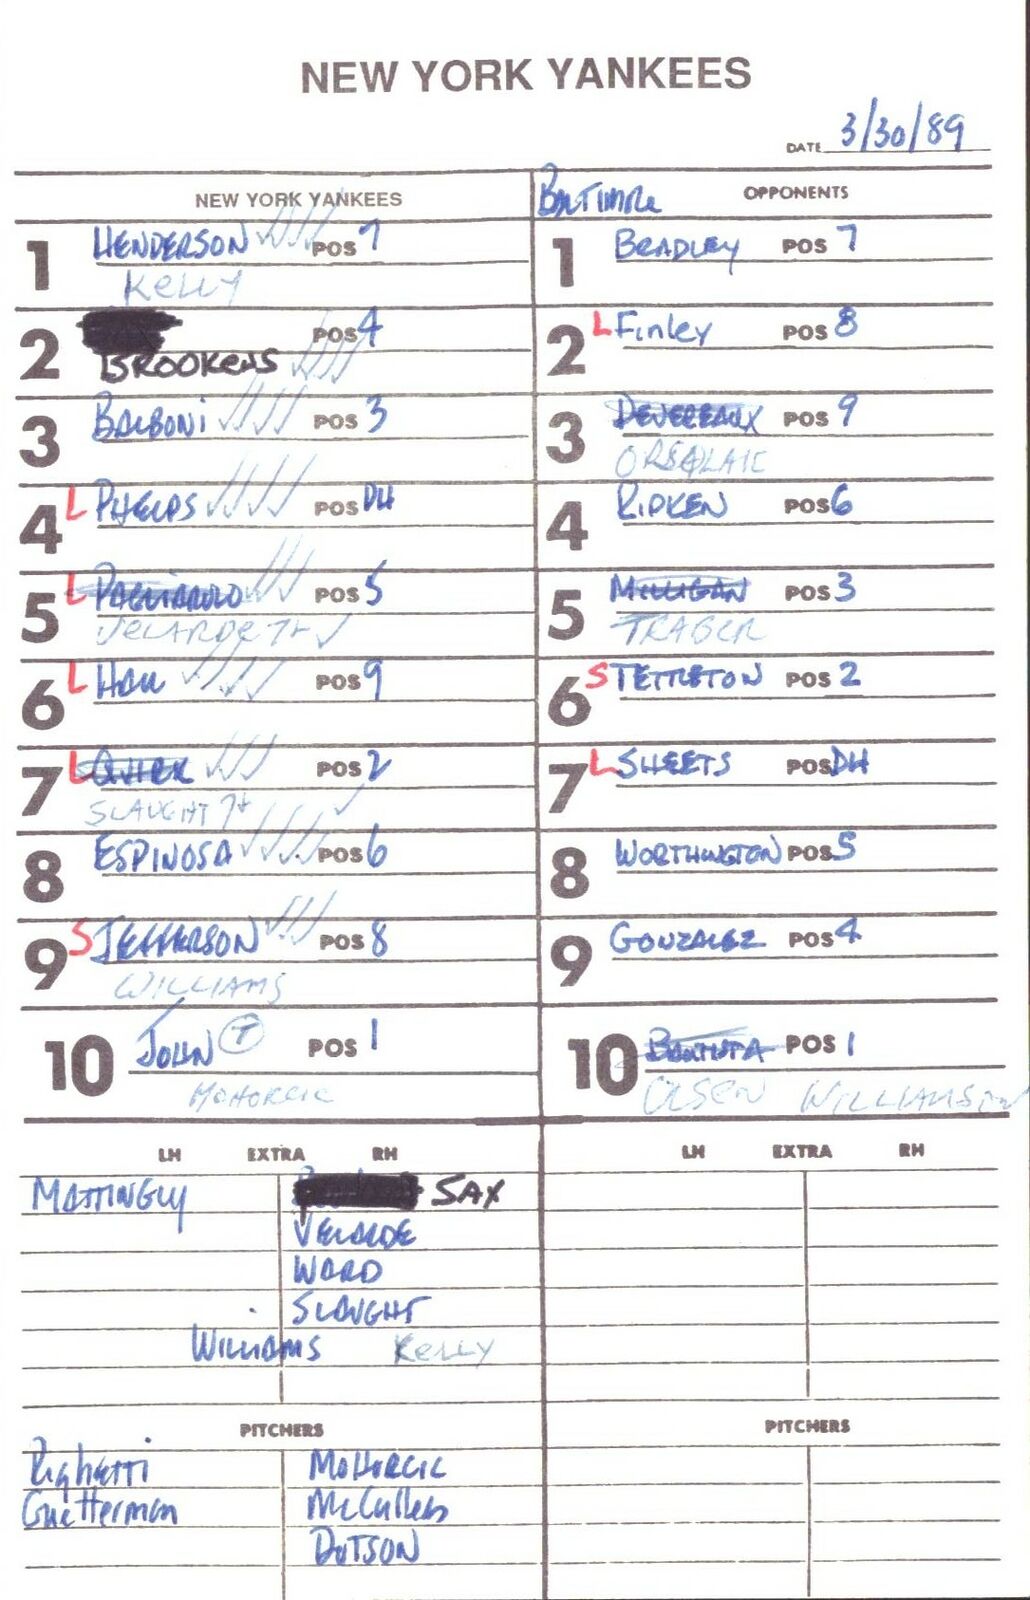 NEW YORK YANKEES
DATE 3/30/89
NEW YORK YANKEES
1 HENDERSON POS 7
KELLY
2 POS 4
BROOKENS
3 BALBONI POS 3
4 L PHELPS POS DH
5 L PAGLIARULO POS 5
VELARDE 7+
6 L HALL POS 9
7 L QUIRK POS 2
SLAUGHT 7+
8 ESPINOSA POS 6
9 S JEFFERSON POS 8
WILLIAMS
10 JOHN T POS 1
MOHORCIC
BALTIMORE OPPONENTS
1 BRADLEY POS 7
2 L Finley POS 8
3 DEVEREAUX POS 9
ORSALAK
4 RIPKEN POS 6
5 MILLIGAN POS 3
TRABER
6 S TETTLETON POS 2
7 L SHEETS POS DH
8 WORTHINGTON POS 5
9 GONZALEZ POS 4
10 BAUTISTA POS 1
OLSEN WILLIAMSON
LH EXTRA RH
MATTINGLY SAX
VELARDE
WARD
SLAUGHT
WILLIAMS KELLY
PITCHERS
Righetti MOHORCIC
Guetterman McCullers
DOTSON
LH EXTRA RH
PITCHERS